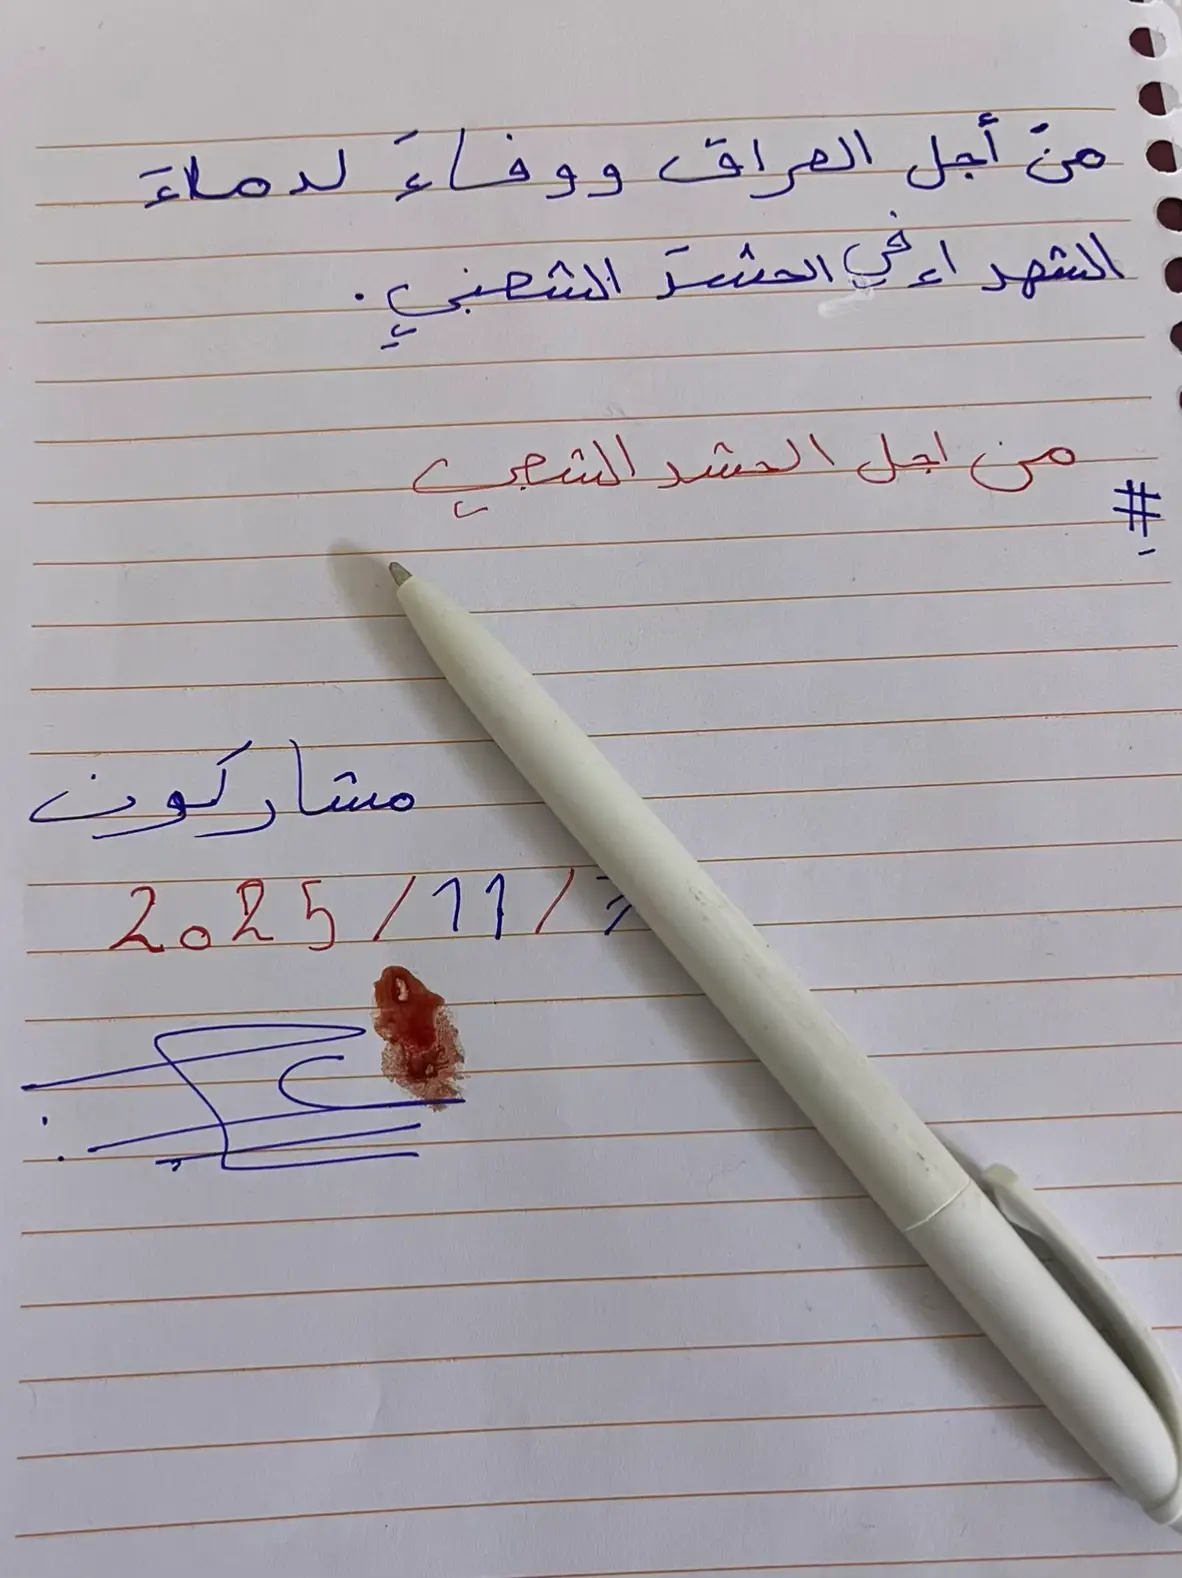 من أجل العراق ووفاءً لدماء
الشهداء في الحشد الشعبي.
من اجل الحشد الشعبي
#
مشاركون
2025/11/